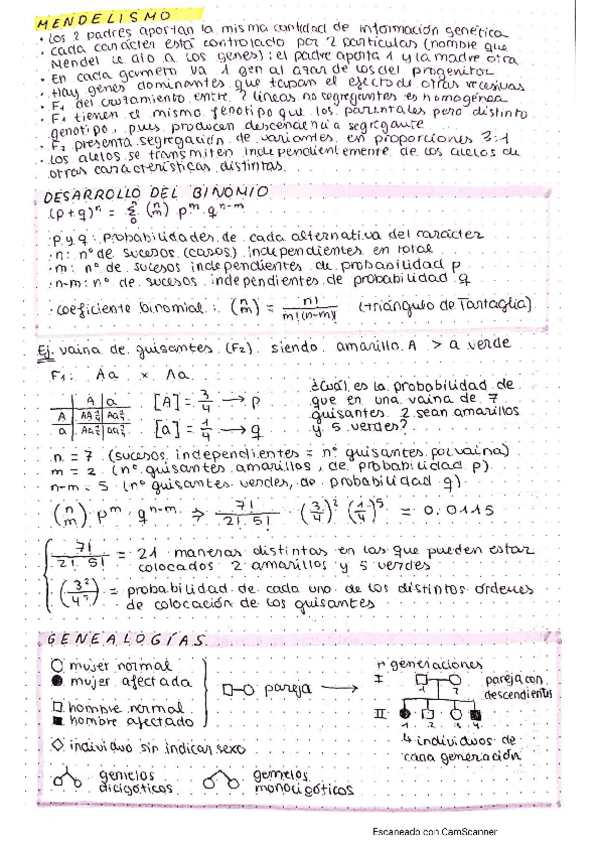 MENDELISMO
· Los 2 padres aportan la misma cantidad de información genética
· Cada carácter está controlado por 2 partículas (nombre que
Mendel le dio a los genes): el padre aporta 1 y la madre otra
· En cada gameto va 1 gen al azar de los del progenitor
· Hay genes dominantes que tapan el efecto de otras recesivas
· F1 del cruzamiento entre 2 líneas no segregantes es homogénea
· F1 tienen el mismo fenotipo que los parentales pero distinto
genotipo, pues producen descendencia segregante
· F2 presenta segregación de variantes en proporciones 3:1
· Los alelos se transmiten independientemente de los alelos de
otras características distintas.
DESARROLLO DEL BINOMIO
(p+q)ⁿ = Σ (n m) pᵐ qⁿ⁻ᵐ
· p y q: probabilidades de cada alternativa del carácter
· n: nº de sucesos (casos) independientes en total
· m: nº de sucesos independientes de probabilidad p
· n-m: nº de sucesos independientes de probabilidad q
· coeficiente binomial: (n m) = n! / m!(n-m)! (triángulo de Tartaglia)
Ej. vaina de guisantes (F2) siendo amarillo A > a verde
F1: Aa × Aa
¿Cuál es la probabilidad de
que en una vaina de 7
guisantes 2 sean amarillos
y 5 verdes?
A a
A AA ¼ Aa ¼
a Aa ¼ aa ¼
[A] = 3/4 → p
[a] = 1/4 → q
n = 7 (sucesos independientes = nº guisantes por vaina)
m = 2 (nº guisantes amarillos, de probabilidad p)
n-m = 5 (nº guisantes verdes, de probabilidad q)
(n m) · pᵐ · qⁿ⁻ᵐ ⇒ 7! / 2! 5! · (3/4)² (1/4)⁵ = 0.0115
7! / 2! 5! = 21 maneras distintas en las que pueden estar
colocados 2 amarillos y 5 verdes
(3² / 4⁷) = probabilidad de cada uno de los distintos órdenes
de colocación de los guisantes
GENEALOGÍAS
mujer normal
mujer afectada
hombre normal
hombre afectado
pareja
generaciones
I
1 2
pareja con
descendientes
II
1 2 3 4
individuos de
cada generación
individuo sin indicar sexo
gemelos
dicigóticos
gemelos
monocigóticos
Escaneado con CamScanner